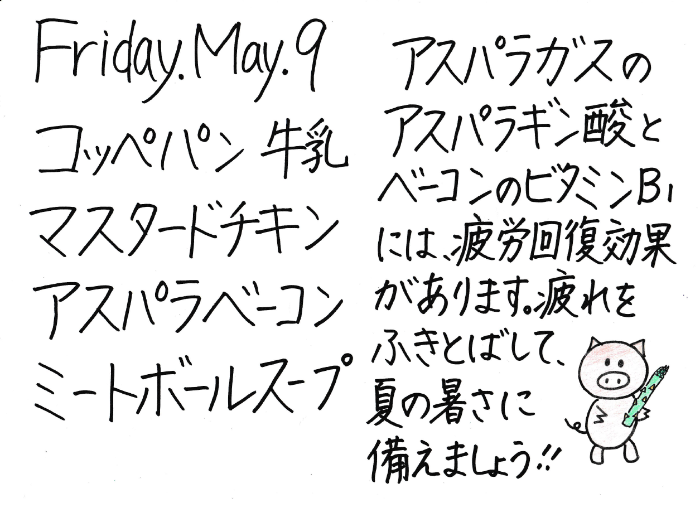 Friday.May.9
コッペパン 牛乳
マスタードチキン
アスパラベーコン
ミートボールスープ
アスパラガスの
アスパラギン酸と
ベーコンのビタミンB1
には、疲労回復効果
があります。疲れを
ふきとばして、
夏の暑さに
備えましょう!!